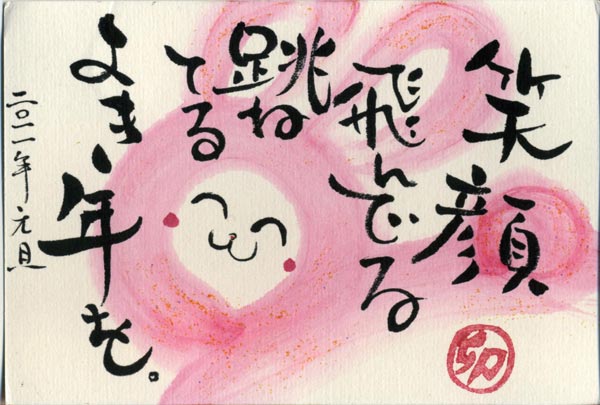 笑顔
飛んでる
跳ね
てる
よき年を。
二〇一一年・元旦
卯